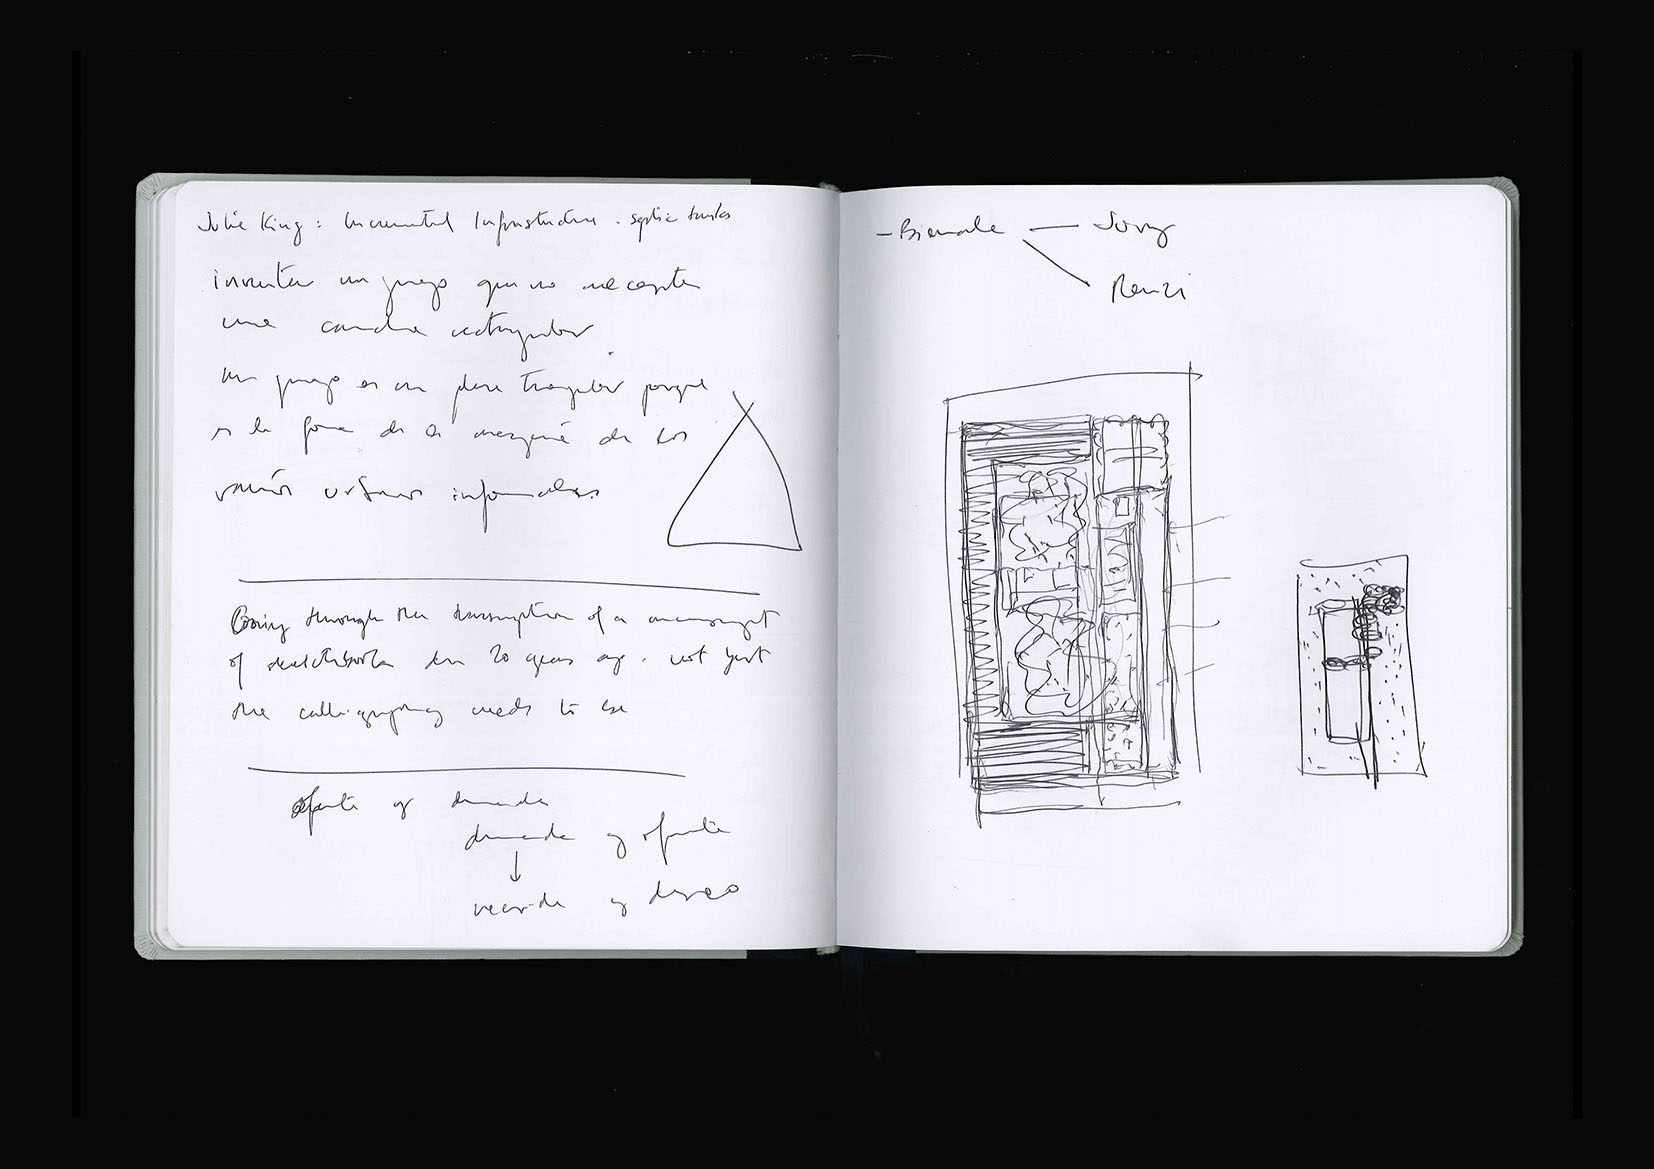 Julie King: Incremental Infrastructure. septic tanks
inventar un juego que no necesite
una cancha rectangular
un juego en un plano triangular porque
es la forma de de los
vacíos urbanos informales.
Going through the transcription of a manuscript
of sketchbook 20 years ago. not just
the calligraphy needs to be
oferta y demanda
demanda y oferta
y deseo
- Bienale — Jury
Renzi